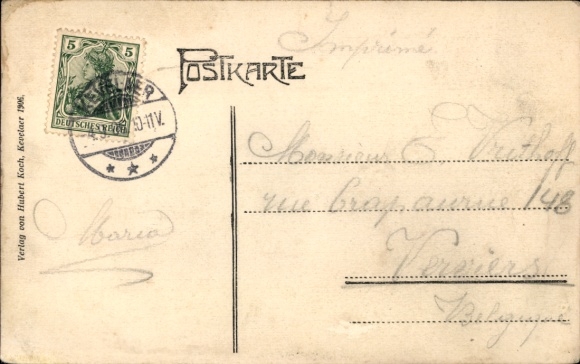 Imprimé.
POSTKARTE
5 5
DEUTSCHES REICH
KEVELAER
10-11 V.
Verlag von Hubert Koch, Kevelaer 1906.
Monsieur E
rue Crapaurue 148
Maria
Verviers
Belgique